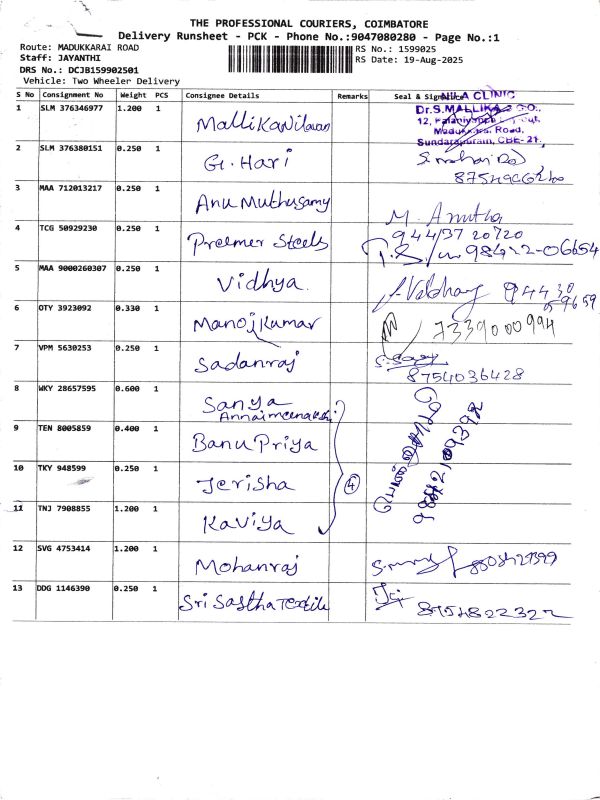 THE PROFESSIONAL COURIERS, COIMBATORE
Delivery Runsheet - PCK - Phone No.:9047080280 - Page No.:1
Route: MADUKKARAI ROAD
RS No.: 1599025
Staff: JAYANTHI
RS Date: 19-Aug-2025
DRS No.: DCJB159902501
Vehicle: Two Wheeler Delivery
S No Consignment No Weight PCS Consignee Details Remarks Seal & Signature
NILA CLINIC
1 SLM 376346977 1.200 1 Mallikanilavan
Dr.S.MALLIKA
12,
Madukkarai Road,
Sundarapuram, CBE-21.
2 SLM 376380151 0.250 1 G. Hari
3 MAA 712013217 0.250 1 Anu Muthusamy
M. Anutha
944137 20720
4 TCG 50929230 0.250 1 Preemer Steels
98422-06654
5 MAA 9000260307 0.250 1 Vidhya.
94430
59659
6 OTY 3923092 0.330 1 Manojkumar 7339000994
7 VPM 5630253 0.250 1 Sadanraj
8754036428
8 WKY 28657595 0.600 1 Sanya
Annaimeenakshi
9 TEN 8005859 0.400 1 Banu Priya
10 TKY 948599 0.250 1 Jerisha 4
11 TNJ 7908855 1.200 1 Kaviya
12 SVG 4753414 1.200 1 Mohanraj
13 DDG 1146390 0.250 1 Sri Sastha Textile
8754822322